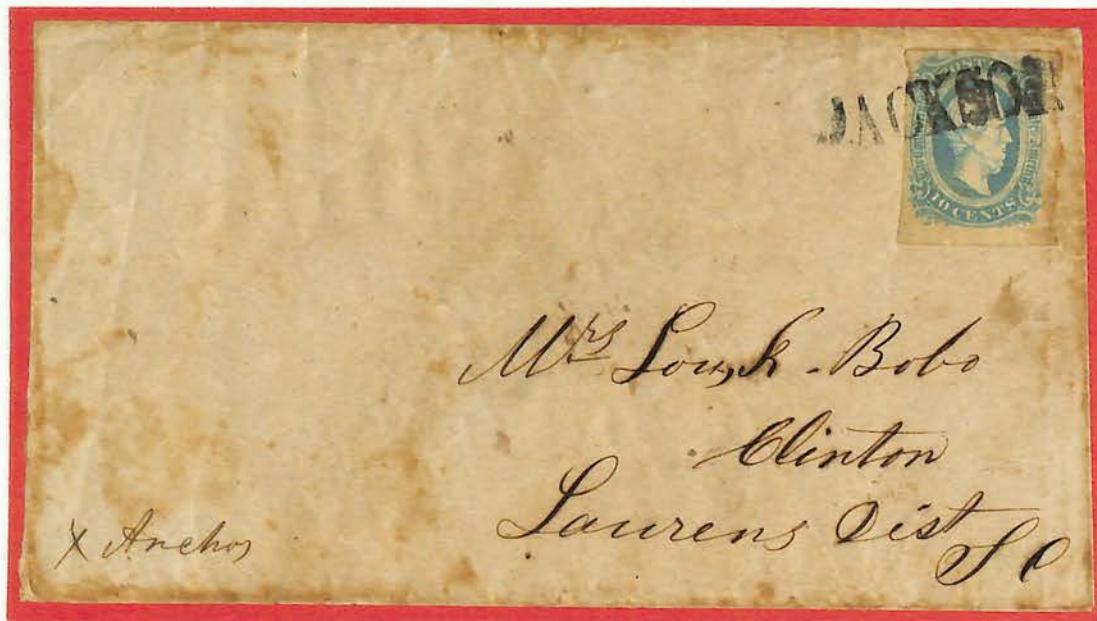 JACKSON
10 CENTS
Mrs Lou, S. Bobo
Clinton
Laurens Dist
S C
X Anchor